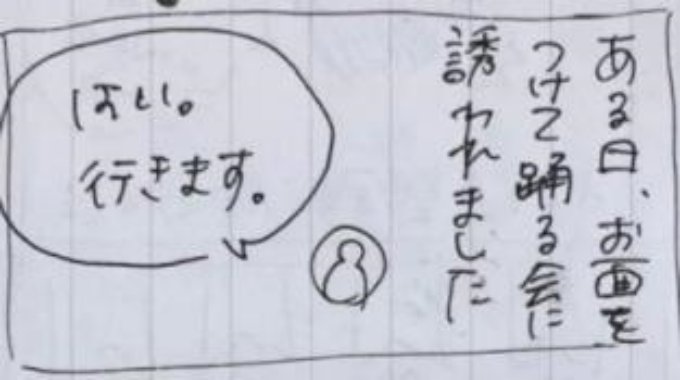 ある日、お面を
つけて踊る会に
誘われました
はい。
行きます。